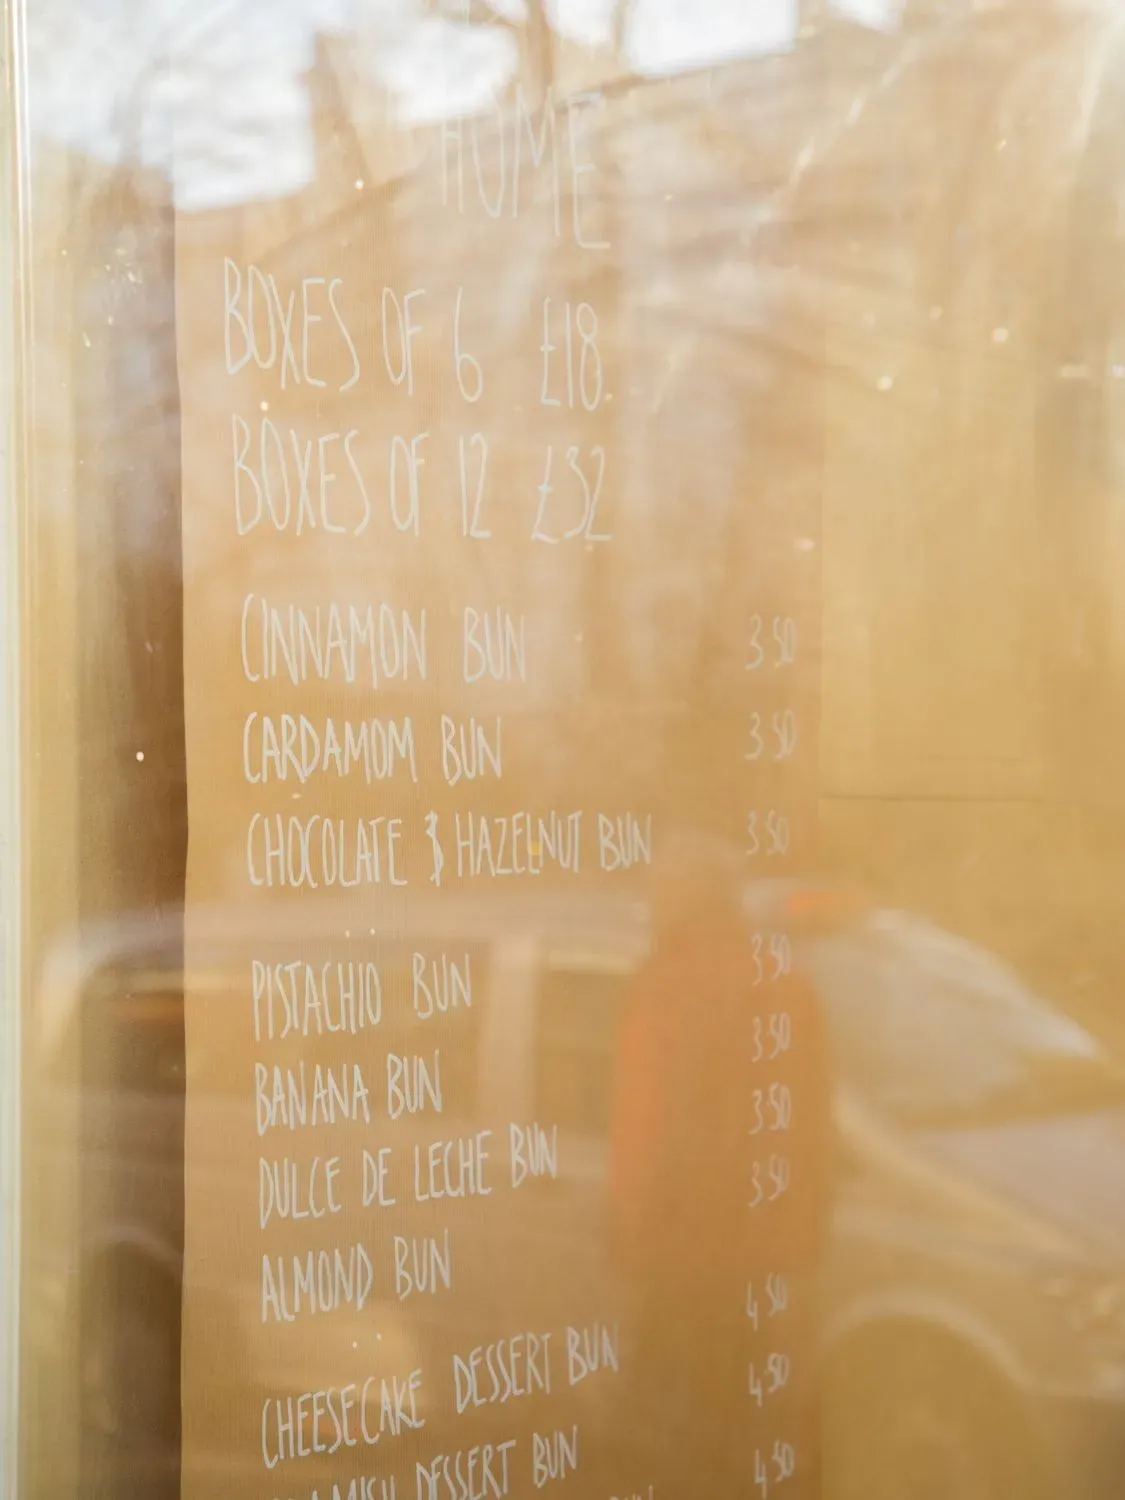 HOME
BOXES OF 6 £18
BOXES OF 12 £32
CINNAMON BUN 3.50
CARDAMOM BUN 3.50
CHOCOLATE & HAZELNUT BUN 3.50
PISTACHIO BUN 3.50
BANANA BUN 3.50
DULCE DE LECHE BUN 3.50
ALMOND BUN 3.50
CHEESECAKE DESSERT BUN 4.50
DESSERT BUN 4.50
BUN 4.50